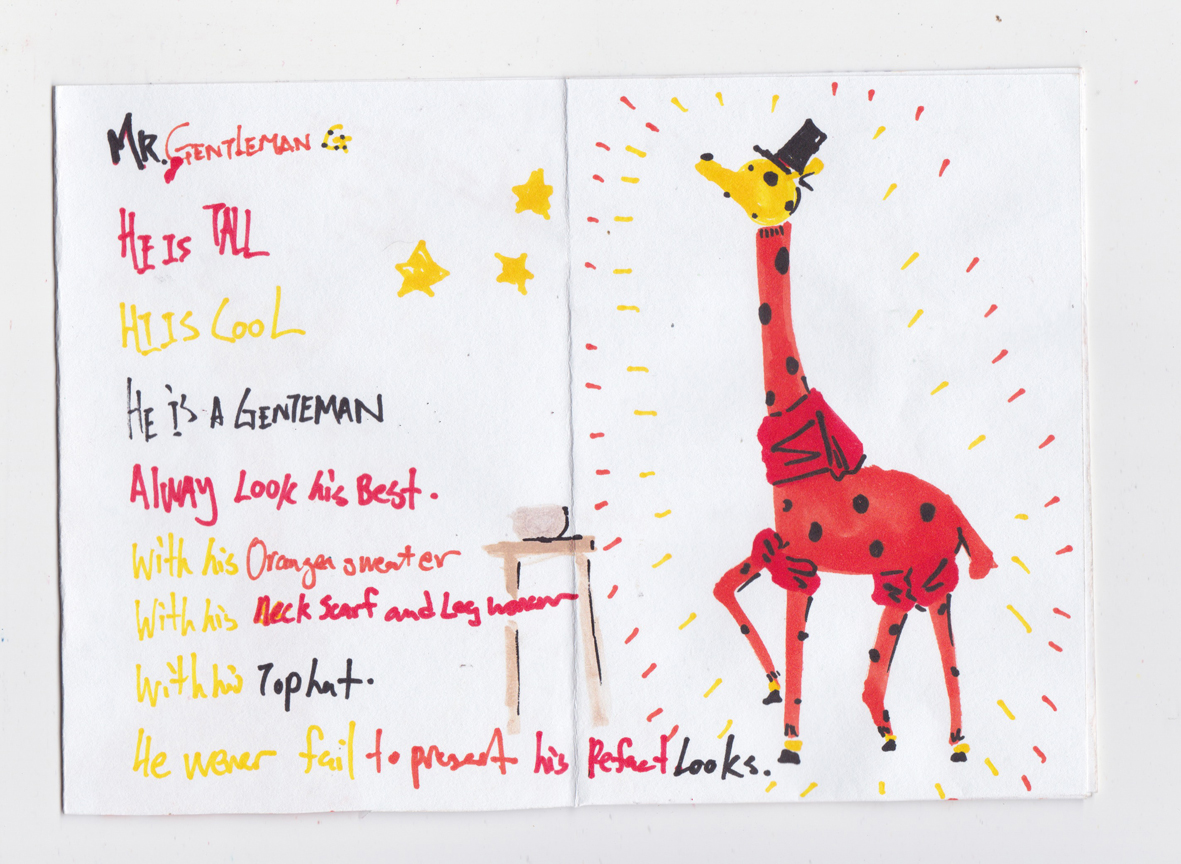 MR. GENTLEMAN G
HE IS TALL
HI IS COOL
HE IS A GENTEMAN
Alway Look his Best.
With his Orangen sweater
With his Neck Scarf and Leg womenr
With his Tophat.
He wener fail to present his Refact Looks.